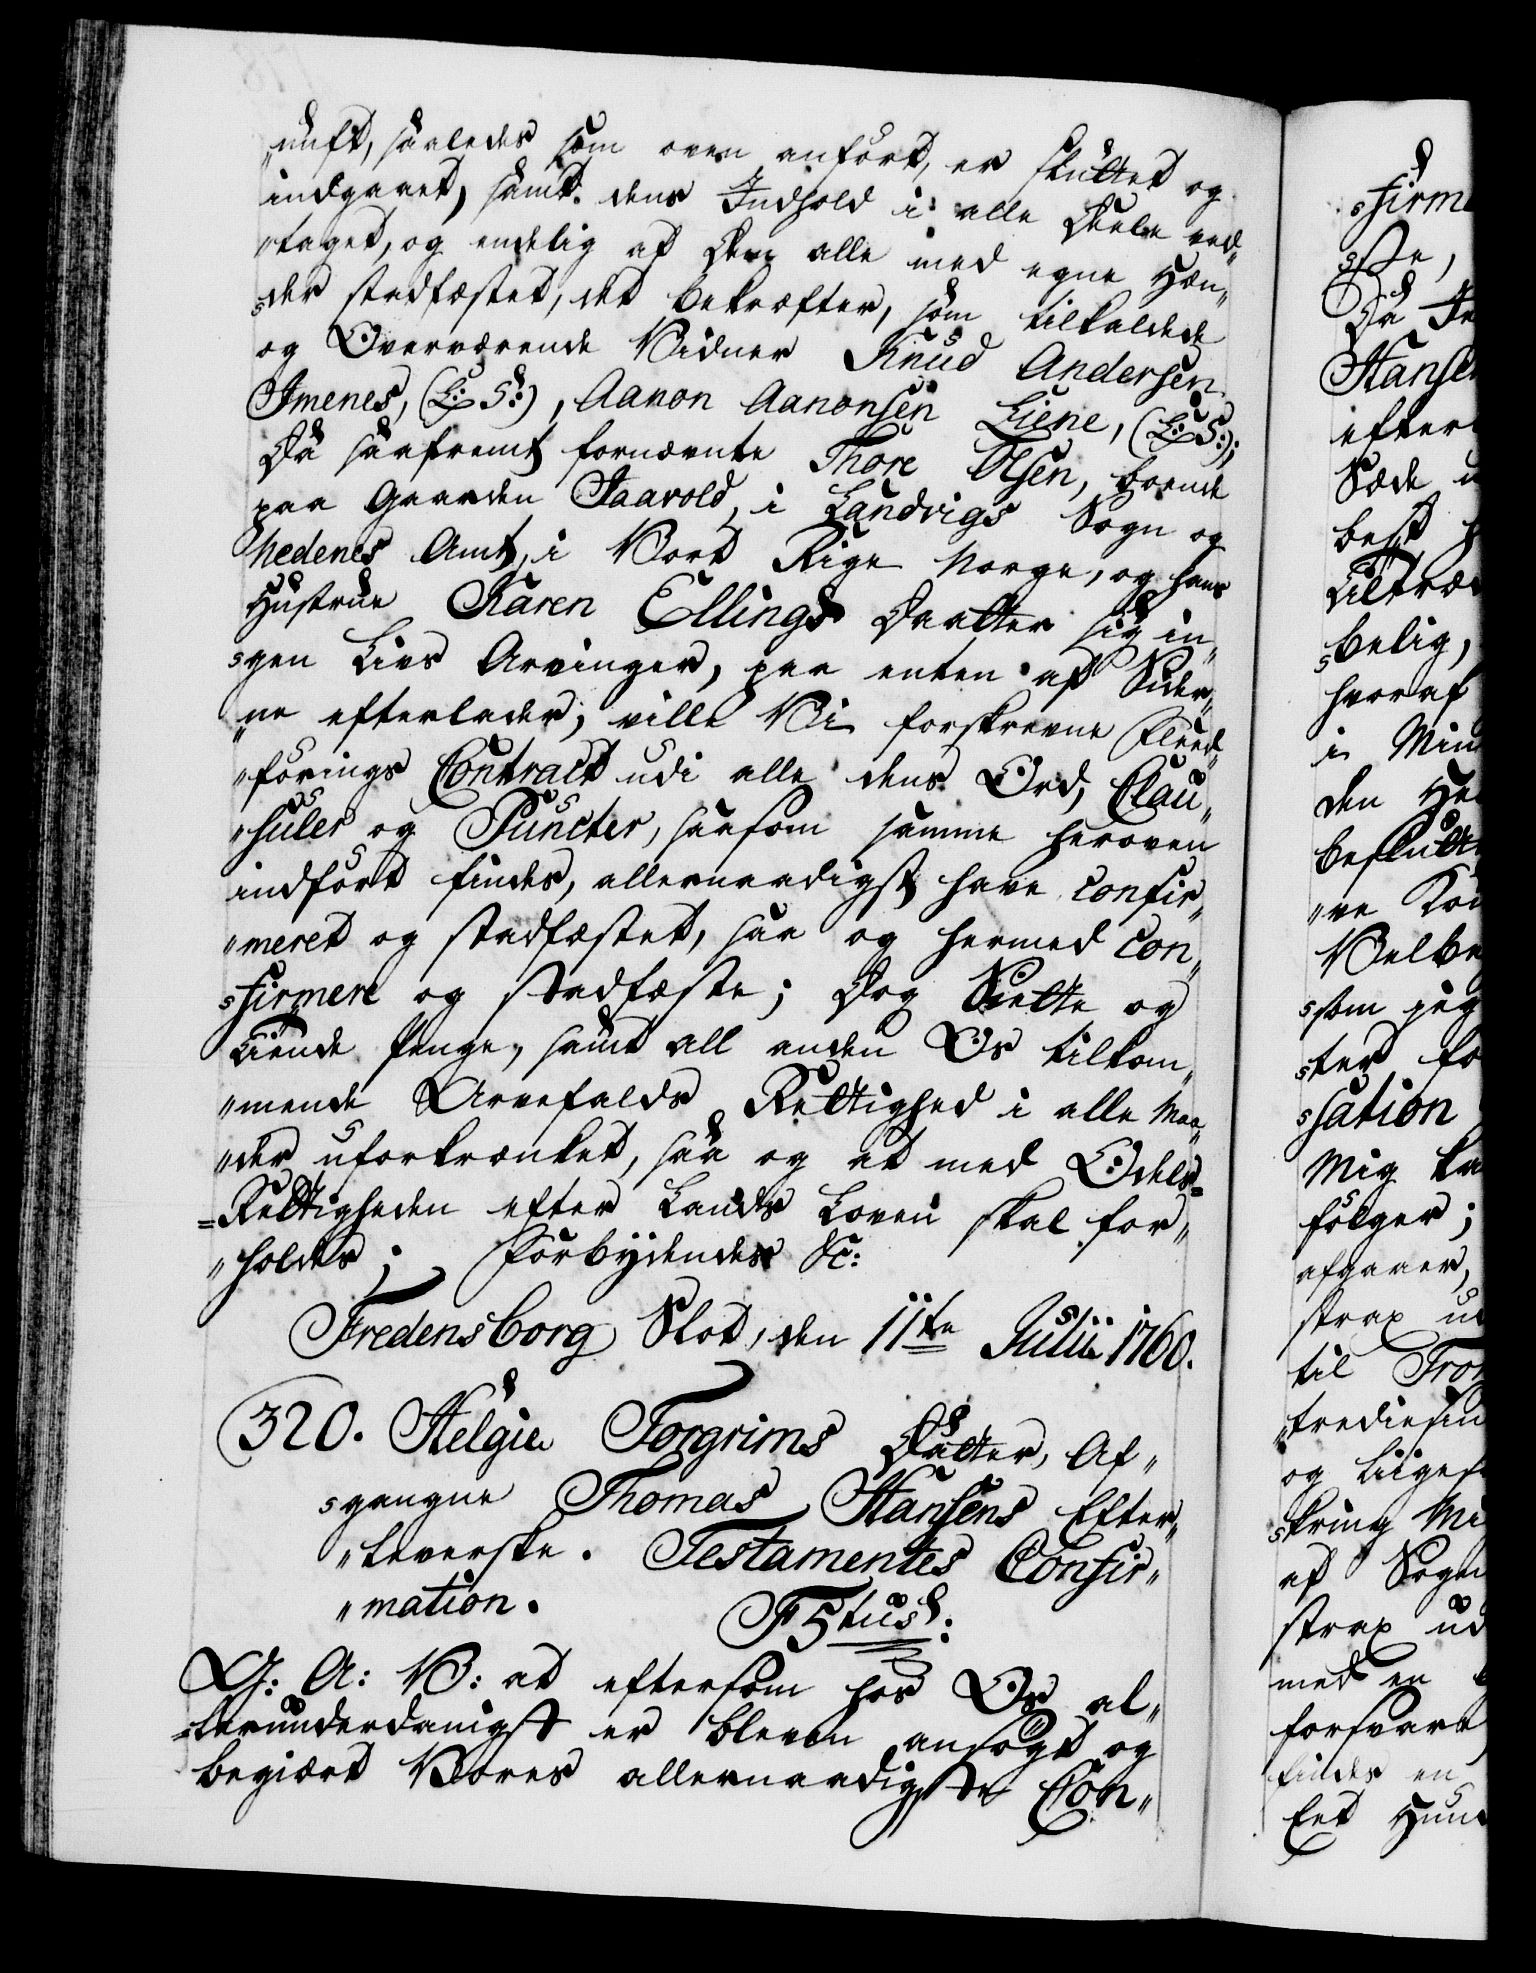 „nuft, saaledes som oven anført, er sluttet og
indgaaet, samt dens Indhold i alle Deele ved„
„taget, og endelig af Dem alle med egne Hæn„
„der stadfæstet, det bekræfter, som tilkaldede
og Overværende Vidner Knud Andersen
Imenes, (L: S:), Aanon Aanonsen Liene, (L: S:);
Da saafremt fornævnte Thore Olsen, boende
paa Gaarden Jaavold, i Landvigs Sogn og
Nedenes Amt, i Vort Rige Norge, og hans
Hustrue Karen Ellings Daatter sig in„
„gen Livs Arvinger, paa enten af Sider„
„ne efterlader, ville Vi forskrevne Fled„
„førings Contract udi alle dens Ord, Clau„
„suler og Puncter, saasom samme heroven
indført findes, allernaadigst have confir„
„meret og stadfæstet, saa og hermed con„
„firmere og stadfæste; Dog Siette og
Tiende Penge, samt all anden Os tilkom„
„mende Arvefalds Rettighed i alle Maa„
„der uforkrænket, saa og at med Odels=
=Rettigheden efter Lands Loven skal for„
„holdes; Forbydendes &c:
Fredensborg Slot, den 11te Julii 1760.
320. Helgie Torgrims Datter, Af„
„gangne Thomas Hansens Efter„
„leverske. Testamentes Confir„
„mation.
F5tus:
G: A: V: at eftersom hos Os al„
„lerunderdanigst er bleven ansøgt og
begiært Vores allernaadigste Con„
„firme
„ste,
Da
Hansen
efter
Sæde
best
Tiltræ
„belig,
hvoraf
i Min
den
beslutte
„ve
Velbe
„som jeg
„ter fo
„sation
Mig
følger;
afgaaer,
strax
til
„tredie
og liige
„kring
af Sogn
strax ud
med en
forsvare
findes en
Eet Hun